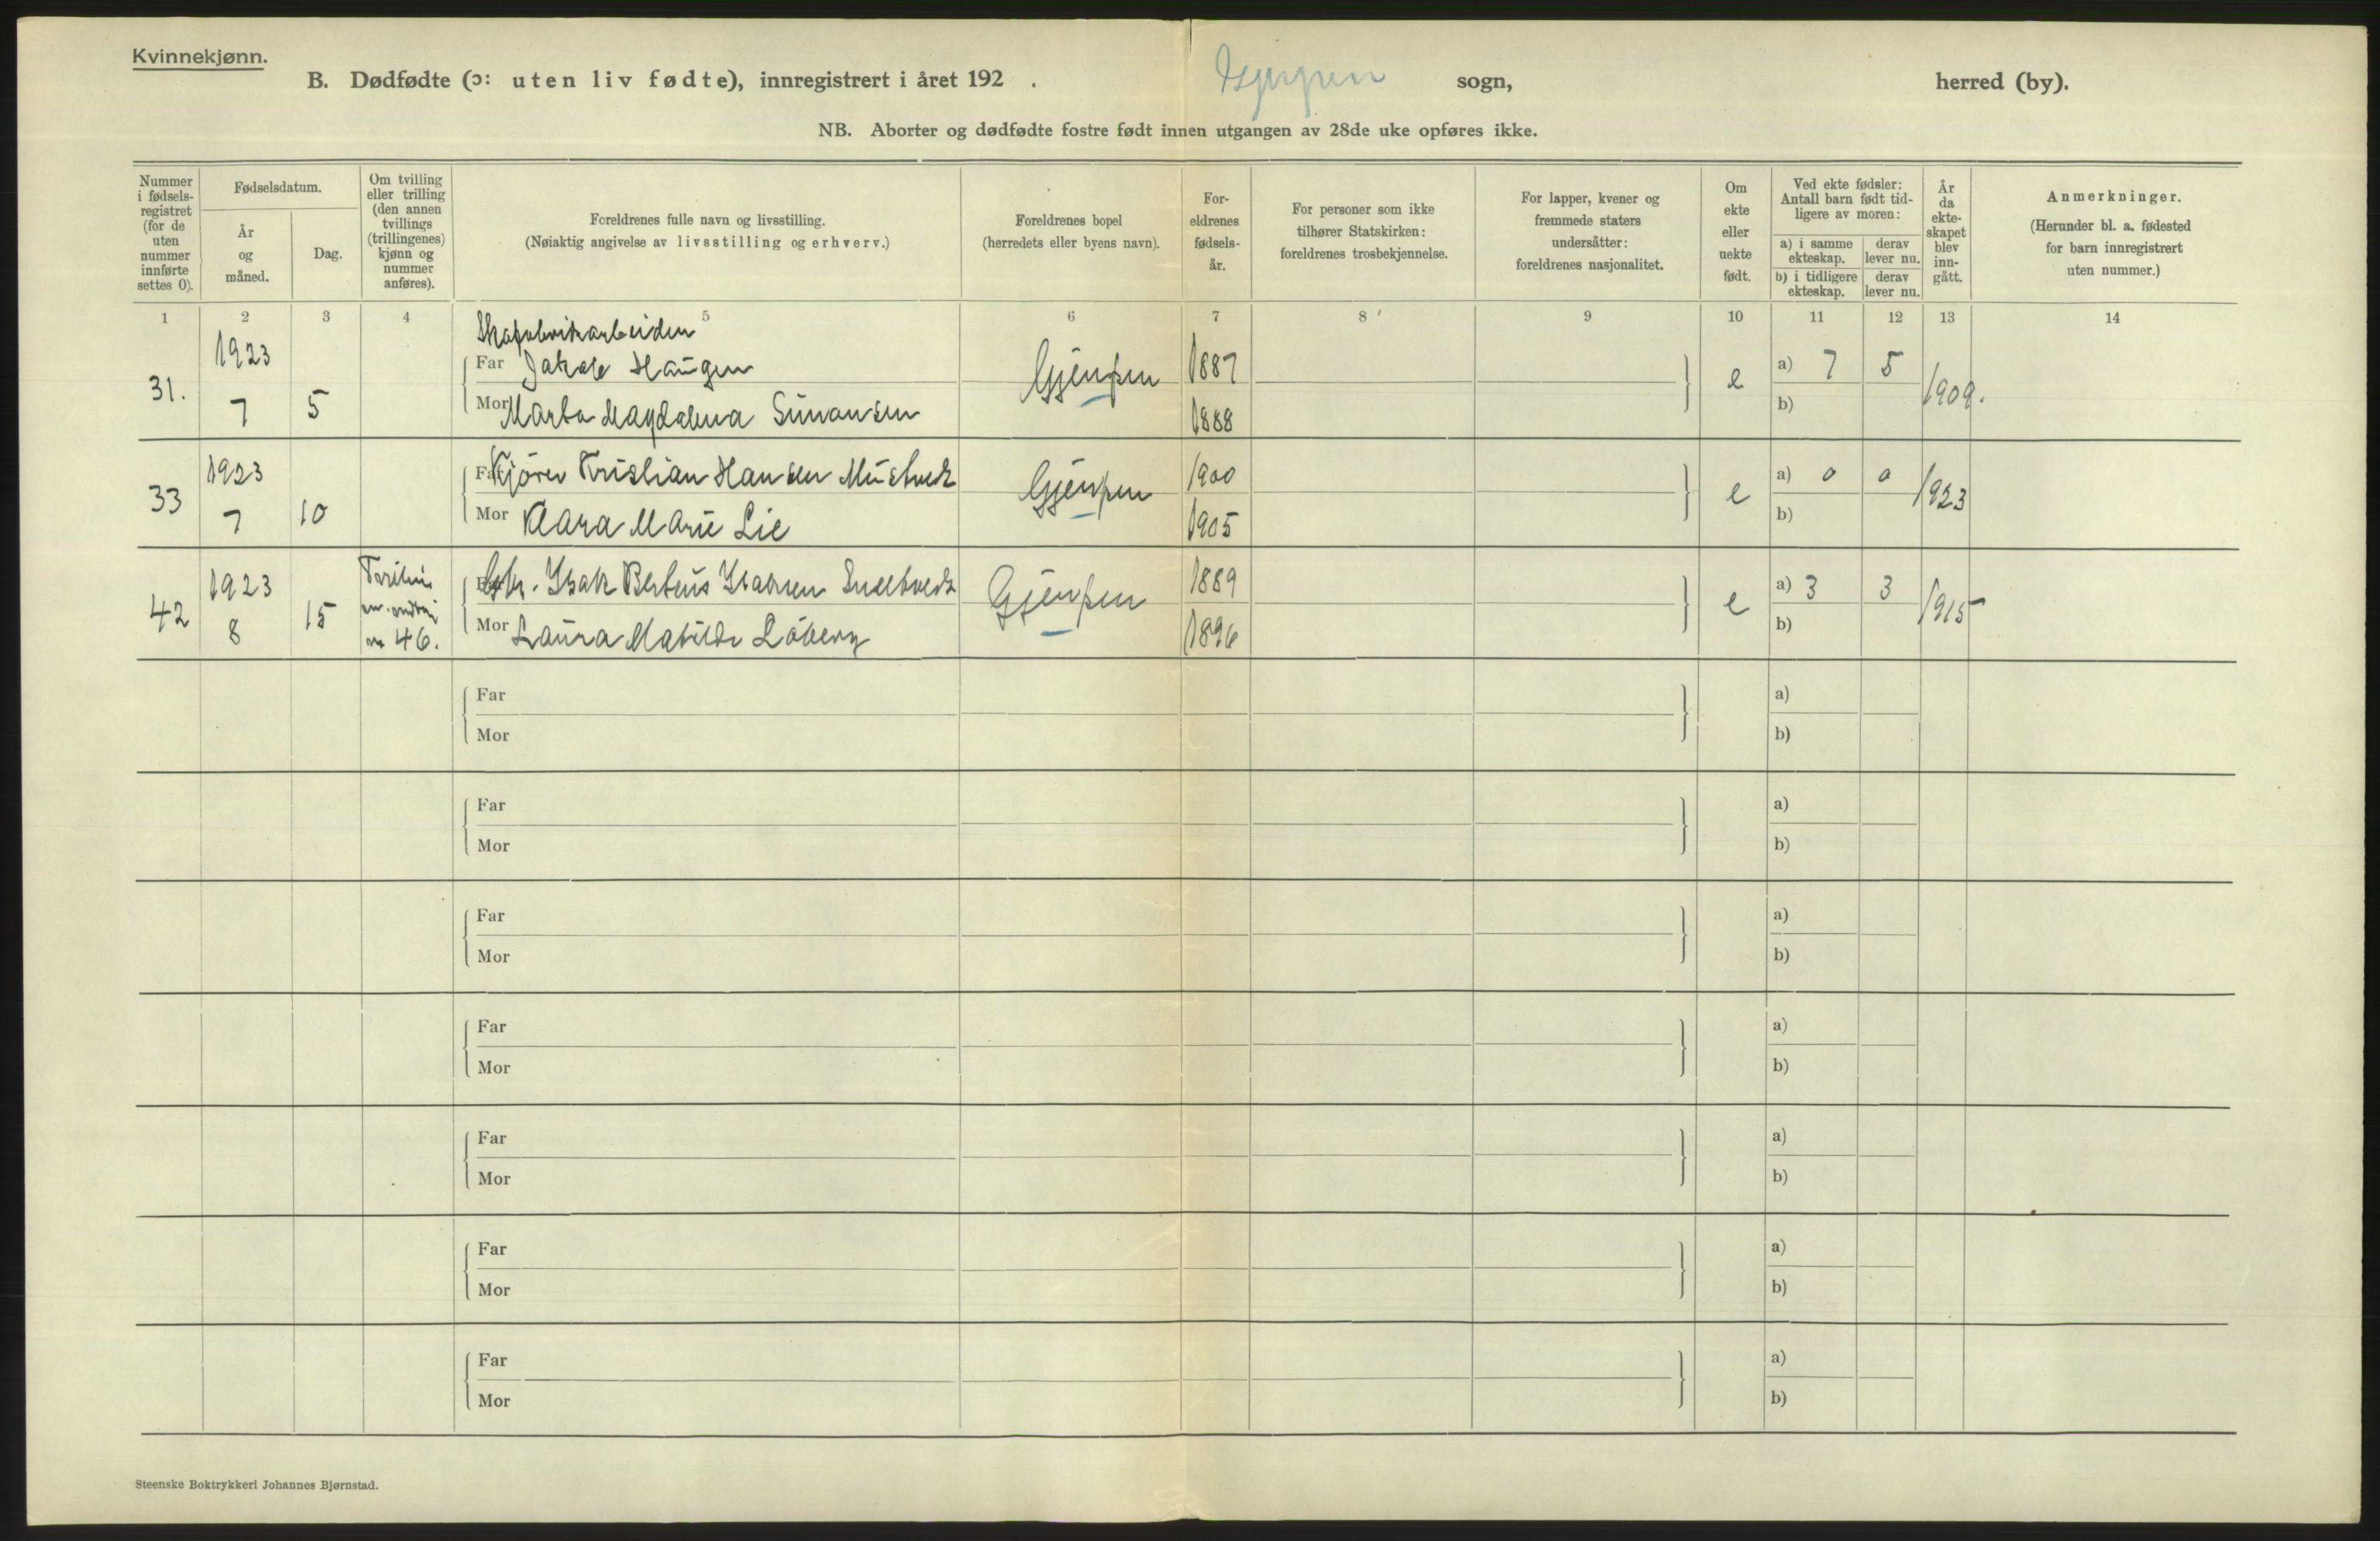 Kvinnekjønn.
B. Dødfødte (ɔ: uten liv fødte), innregistrert i året 192 . Gjerpen sogn, herred (by).
NB. Aborter og dødfødte fostre født innen utgangen av 28de uke opføres ikke.
Nummer
i fødsels-
registret
(for de
uten
nummer
innførte
settes 0).
Fødselsdatum.
År
og
måned.
Dag.
Om tvilling
eller trilling
(den annen
tvillings
(trillingenes)
kjønn og
nummer
anføres).
Foreldrenes fulle navn og livsstilling.
(Nøiaktig angivelse av livsstilling og erhverv.)
Foreldrenes bopel
(herredets eller byens navn).
For-
eldrenes
fødsels-
år.
For personer som ikke
tilhører Statskirken:
foreldrenes trosbekjennelse.
For lapper, kvener og
fremmede staters
undersåtter:
foreldrenes nasjonalitet.
Om
ekte
eller
uekte
født.
Ved ekte fødsler:
Antall barn født tid-
ligere av moren:
a) i samme
ekteskap.
derav
lever nu.
b) i tidligere
ekteskap.
derav
lever nu.
År
da
ekte-
skapet
blev
inn-
gått.
Anmerkninger.
(Herunder bl. a. fødested
for barn innregistrert
uten nummer.)
1 2 3 4 5 6 7 8 9 10 11 12 13 14
31. 1923 7 5
Far Jakob Haugen
Mor Marta Magdalena Simonsen
Gjerpen 1887 1888 e a) 7 5 b) 1909.
33 1923 7 10
Far Kristian Hansen
Mor Klara Marie Lie
Gjerpen 1900 1905 e a) 0 0 b) 1923
42 1923 8 15
46.
Far Isak Berteus Isaksen
Mor Laura Matilde Løberg
Gjerpen 1889 1896 e a) 3 3 b) 1915
Far a)
Mor b)
Far a)
Mor b)
Far a)
Mor b)
Far a)
Mor b)
Far a)
Mor b)
Far a)
Mor b)
Far a)
Mor b)
Steenske Boktrykkeri Johannes Bjørnstad.